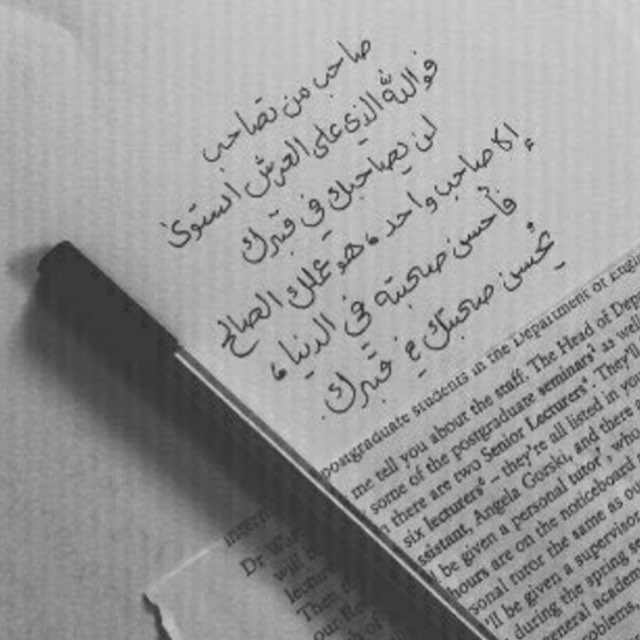 صاحب من تصاحب
فوالله الذي على العرش استوى
لن يصاحبك في قبرك
إلا صاحب واحد، هو عملك الصالح
فأحسن صحبته في الدنيا،
يحسن صحبتك في قبرك
postgraduate students in the Department of Engli
me tell you about the staff. The Head of Dep
some of the postgraduate seminars* as
there are two Senior Lecturers*. They'll
six lecturers* – they're all listed in
Angela Corsh, and there
be given a personal tutor*, who
ours are on the noticeboard
sonal tutor the same as
'll be given a supervisor
during the spring
neral academ
oblems
Dr W
will b
lectur
Ther
our